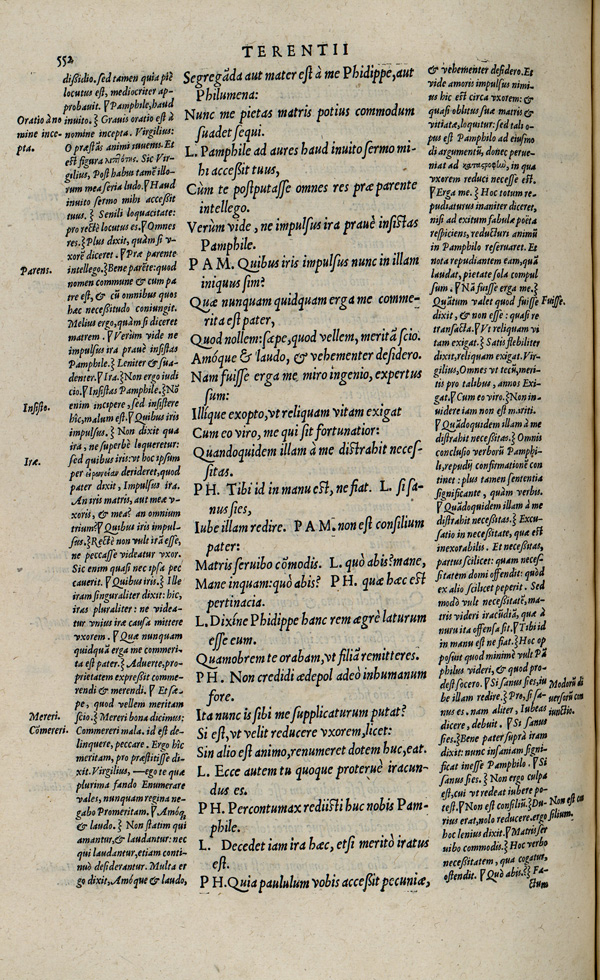 552
TERENTII
dißidio. sed tamen quia piè
locutus est, mediocriter ap-
probauit. Pamphile, haud
inuito. Grauis oratio est à
nomine incepta. Virgilius:
O præstãs animi iuuenis. Et
est figura Sic Vir-
gilius, Post habui tamẽ illo-
rum mea seria ludo. Haud
inuito sermo mihi acceßit
tuus. Senili loquacitate:
pro rectè locutus es. Omnes
res. Plus dixit, quàm si v-
xorẽ diceret. Præ parente
intellego. Bene parẽte: quod
nomen commune & cum pa
tre est, & cũ omnibus quos
hac necessitudo coniungit.
Melius ergo, quàm si diceret
matrem. Verùm vide ne
impulsus ira prauè insistas
Pamphile. Leniter & sua-
denter. Ira. Non ergo iudi
cio. Insistas Pamphile. Nõ
enim incepere, sed insistere
hîc, malum est. Quibus iris
impulsus. Non dixit qua
ira, ne superbè loqueretur:
sed quibus iris: vt hoc ipsum
per derideret, quod
pater dixit, Impulsus ira.
An iris matris, aut meæ v-
xoris, & mea? an omnium
trium? Quibus iris impul-
sus. Rectè non vult irã esse,
ne peccasse videatur vxor.
Sic enim quasi nec ipsa pec
cauerit. Quibus iris. Ille
iram singulariter dixit: hic,
iras pluraliter: ne videa-
tur vnius ira causa mittere
vxorem. Quæ nunquam
quidquã erga me commeri-
ta est pater. Aduerte, pro-
prietatem expreßit comme-
rendi & merendi. Et sæ-
pe, quod vellem meritam
scio. Mereri bona dicimus:
Commereri mala. id est de-
linquere, peccare. Ergo hîc
meritam, pro præstitisse di-
xit. Virgilius, —ego te quæ
plurima fando Enumerare
vales, nunquam regina ne-
gabo Promeritam. Amóq;
& laudo. Non statim qui
amantur, & laudantur: nec
qui laudantur, etiam conti-
nuò desiderantur. Multa er
go dixit, Amóque & laudo,
Oratio à no
mine ince-
pta.
Parens.
Insisto.
Iræ.
Mereri.
Cõmereri.
Segregãda aut mater est à me Phidippe, aut
Philumena:
Nunc me pietas matris potius commodum
suadet sequi.
L. Pamphile ad aures haud inuito sermo mi-
hi acceßit tuus,
Cùm te postputasse omnes res præ parente
intellego.
Verùm vide, ne impulsus ira prauè insistas
Pamphile.
PAM. Quibus iris impulsus nunc in illam
iniquus sim?
Quæ nunquam quidquam erga me comme-
rita est pater,
Quod nollem: sæpe, quod vellem, meritã scio.
Amóque & laudo, & vehementer desidero.
Nam fuisse erga me miro ingenio, expertus
sum:
Illíque exopto, vt reliquam vitam exigat
Cum eo viro, me qui sit fortunatior:
Quandoquidem illam à me distrahit neces-
sitas.
PH. Tibi id in manu est, ne fiat. L. si sa-
nus sies,
Iube illam redire. PAM. non est consilium
pater:
Matris seruibo cõmodis. L. quò abis? mane,
Mane inquam: quò abis? PH. quæ hæc est
pertinacia.
L. Dixíne Phidippe hanc rem ægrè laturum
esse eum.
Quamobrem te orabam, vt filiã remitteres.
PH. Non credidi ædepol adeò inhumanum
fore.
Ita nunc is sibi me supplicaturum putat?
Si est, vt velit reducere vxorem, licet:
Sin alio est animo, renumeret dotem huc, eat.
L. Ecce autem tu quoque proteruè iracun-
dus es.
PH. Percontumax rediisti huc nobis Pam-
phile.
L. Decedet iam ira hæc, etsi meritò iratus
est.
PH. Quia paululum vobis acceßit pecuniæ,
& vehementer desidero. Et
vide amoris impulsus nimi-
us hic est circa vxorem: &
quasi oblitus suæ matris &
vitiatæ, loquitur: sed tali o-
pus est Pamphilo ad eiusmo
di argumentũ, donec perue-
niat ad in qua
vxorem reduci necesse est.
Erga me. Hoc totum re-
pudiaturus inaniter diceret,
nisi ad exitum fabulæ poëta
respiciens, reducturi animũ
in Pamphilo reseruaret. Et
nota repudiantem eam, quã
laudat, pietate sola compul
sum. Nã fuisse erga me.
Quãtum valet quod fuisse
dixit, & non esse: quasi re
transacta. Vt reliquam vi
tam exigat. Satis flebiliter
dixit, reliquam exigat. Vir-
gilius, Omnes vt tecũ, meri-
tis pro talibus, annos Exi-
gat. Cum eo viro. Non in-
uidere iam non est mariti.
Quãdoquidem illam à me
distrahit necesitas. Omnis
conclusio verborũ Pamphi-
li, repudij confirmationẽ con
tinet: plus tamen sententia
significante, quàm verbis.
Quãdoquidem illam à me
distrahit necesitas. Excu-
satio in necesitate, quæ est
inexorabilis. Et necesitas,
partus scilicet: quam necesi
sitatem domi offendit: quòd
ex alio scilicet peperit. Sed
modò vult necesitatẽ, ma-
tris videri iracũdiã, quæ à
nuru ita offensa sit. Tibi id
in manu est ne fiat. Hoc op
posuit quod minimè vult Pã
philus videri, & quod pro-
dest socero. Si sanus sies, iu
be illam redire. Pro, si sa-
nus es. nam aliter, Iubeas
dicere, debuit. Si sanus
sies. Bene pater suprà iram
dixit: nunc insaniam signi-
ficat inesse Pamphilo. Si
sanus sies. Non ergo culpa
est, cui vt redeat iubere po-
test. Non est consiliũ. Du-
rius erat, nolo reducere. ergo
hoc lenius dixit. Matris ser
uibo commodis. Hoc verbo
necesitatem, qua cogatur,
ostendit. Quò abis. Fa-
ctum
Fuisse.
Modorũ di
uersorũ con
iunctio.
Non est cõ
silium.